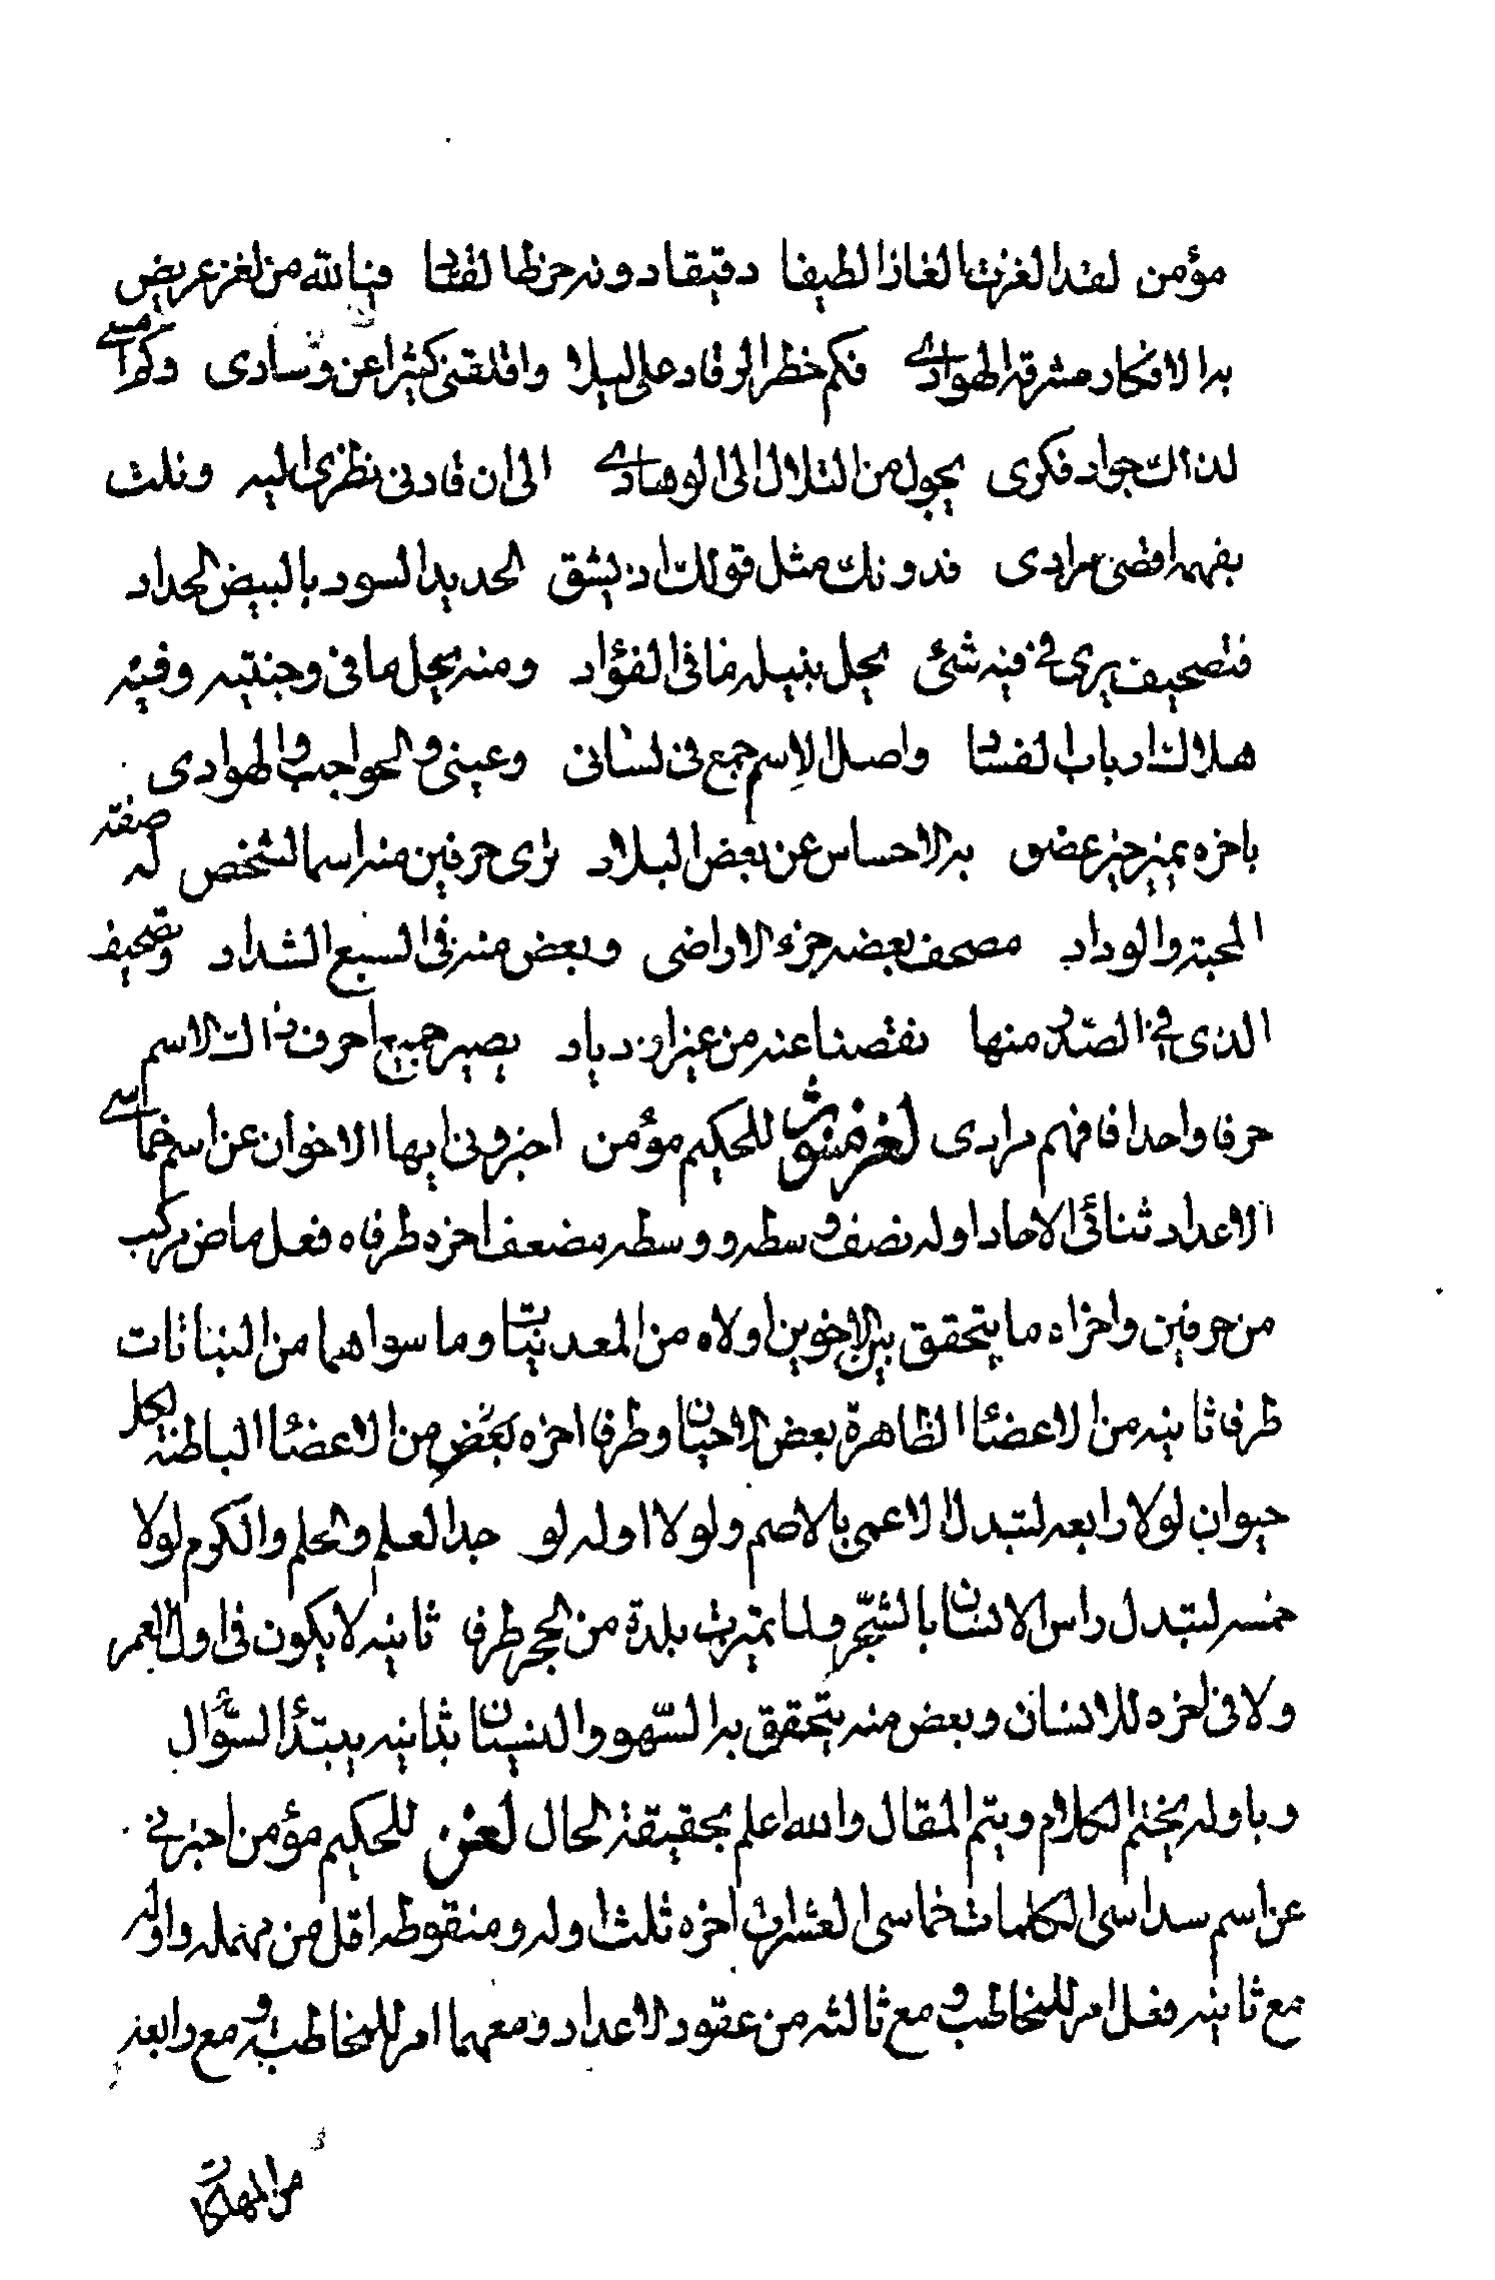 مؤمن لقد الغزت الغازا لطيفا دقيقا دونه خرط القتاد فيا لله من لغز عريض
به الافكار مشرقة الهوادى فكم خطر الرقاد على ليلا واقلقنى كثيرا عن وسادى وكم امسى
لذاك جواد فكرى يجول من التلال الى الوهاد الى ان قادنى نظرى اليه ونلت
بفهمه اقصى مرادى فدونك مثل قولك اذ يشق الحديد السود بالبيض الحداد
فتصحيف يرى فى فيه شئ يحل بنيله ما فى الفؤاد ومنه يحل ما فى وجنتيه وفيه
هلاك ارباب الفساد واصل الاسم جمع فى لسانى وعينى والحواجب والهوادى
باخره يميز حيز عضو به الاحساس عن بعض البلاد ترى حرفين منه اسما لشخص له صفة
المحبة والوداد مصحف بعضه جزء الاراضى وبعض منه فى السبع الشداد وتصحيف
الذى فى الصدر منها نقصنا عنه من غير ازدياد يصير جميع احرف ذاك الاسم
حرفا واحدا فافهم مرادى لغز منثور للحكيم مؤمن اخبرونى ايها الاخوان عن اسم خماسى
الاعداد ثنائى الاحاد اوله نصف وسطه ووسطه مضعف اخره طرفاه فعل ماض مركب
من حرفين واخراه ما يتحقق بين الاخوين اولاه من المعدنيات وما سواهما من النباتات
طرفا ثانيه من الاعضاء الظاهرة بعض الاحيان وطرفا اخره بعض من الاعضاء الباطنة لكل
حيوان لولا رابعه لتبدل الاعمى بالاصم ولولا اوله لو جد العلم والحلم والكرم لولا
خمسه لتبدل راس الانسان بالشجر ولما تميزت بلدة من الحجر طرفا ثانيه لا يكون فى اول العمر
ولا فى اخره للانسان وبعض منه يتحقق به السهو والنسيان بثانيه يبتدأ السؤال
وباوله يختم الكلام ويتم المقال والله اعلم بحقيقة الحال لغز للحكيم مؤمن اخبرنى
عن اسم سداسى الكلمات خماسى العشرات اخره ثلث اوله ومنقوطه اقل من مهمله واوله
مع ثانيه فعل امر للمخاطب ومع ثالثه من عقود الاعداد ومعهما امر للمخاطب ومع رابعه
من المهلكات